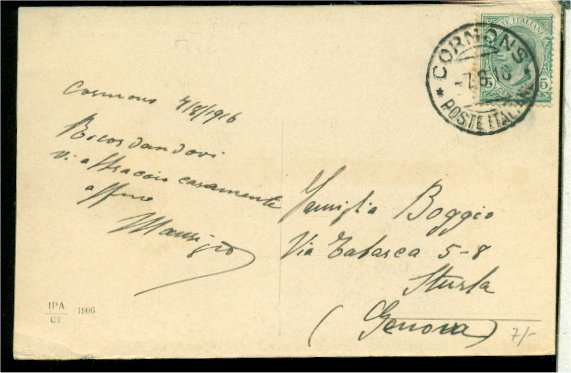 Cormons 7/8/1916
Ricordandovi
vi abbraccio caramente
affmo
CORMONS
-7.8.16
POSTE ITALIANE
POSTE ITALIANE
5
Famiglia Boggio
Via Tabarca 5-8
Sturla
(Genova)
IPA
CT
1806
7/-